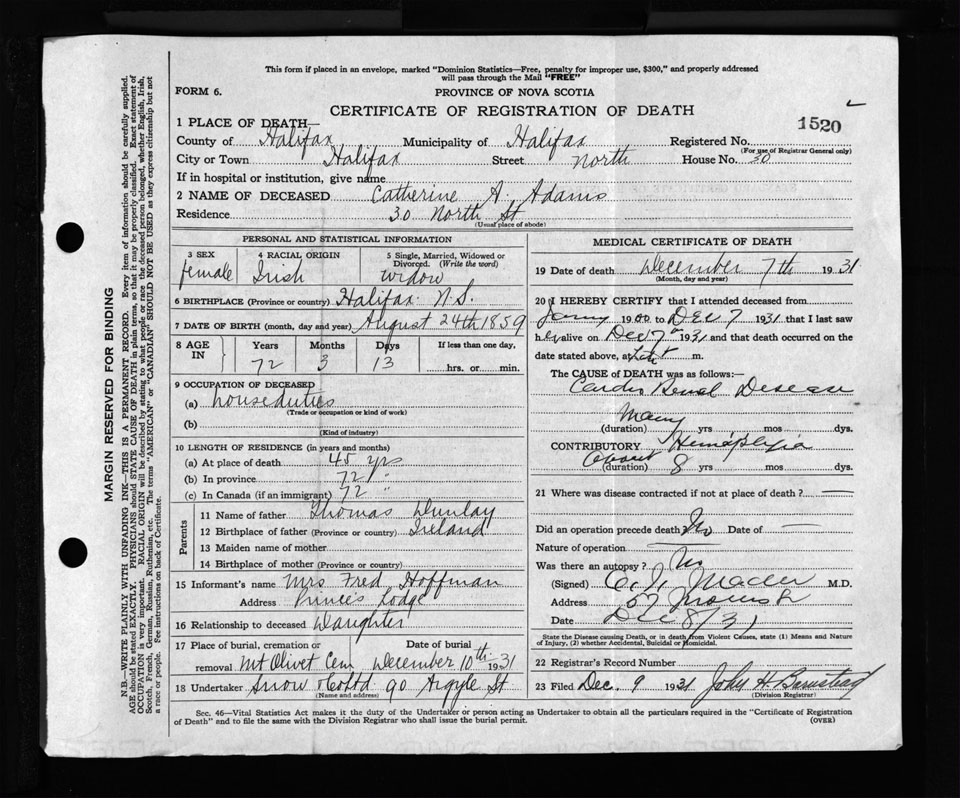 This form if placed in an envelope, marked "Dominion Statistics—Free, penalty for improper use, $300," and properly addressed
will pass through the Mail "FREE"
FORM 6. PROVINCE OF NOVA SCOTIA
CERTIFICATE OF REGISTRATION OF DEATH
1520
1 PLACE OF DEATH—
County of Halifax Municipality of Halifax Registered No.
(For use of Registrar General only)
City or Town Halifax Street North House No. 30
If in hospital or institution, give name
2 NAME OF DECEASED Catherine A. Adams
Residence 30 North St
(Usual place of abode)
PERSONAL AND STATISTICAL INFORMATION
3 SEX 4 RACIAL ORIGIN 5 Single, Married, Widowed or
Divorced. (Write the word)
female Irish widow
6 BIRTHPLACE (Province or country) Halifax N.S.
7 DATE OF BIRTH (month, day and year) August 24th 1859
8 AGE IN Years Months Days If less than one day,
72 3 13 hrs. or min.
9 OCCUPATION OF DECEASED
(a) houseduties
(Trade or occupation or kind of work)
(b)
(Kind of industry)
10 LENGTH OF RESIDENCE (in years and months)
(a) At place of death 45 yrs
(b) In province 72 "
(c) In Canada (if an immigrant) 72 "
Parents
11 Name of father Thomas Dunlay
12 Birthplace of father (Province or country) Ireland
13 Maiden name of mother
14 Birthplace of mother (Province or country)
15 Informant's name Mrs Fred Hoffman
Address Princes Lodge
16 Relationship to deceased Daughter
17 Place of burial, cremation or Date of burial
removal Mt Olivet Cem December 10th 1931
18 Undertaker Snow & Co Ltd 90 Argyle St
(Name and address)
MEDICAL CERTIFICATE OF DEATH
19 Date of death December 7th 1931
(Month, day and year)
20 I HEREBY CERTIFY that I attended deceased from
19 to Dec 7 1931 that I last saw
her alive on Dec 7 1931 and that death occurred on the
date stated above, at m.
The CAUSE of DEATH was as follows:—
Cardio Renal Disease
Many
(duration) yrs mos dys.
CONTRIBUTORY Hemiplegia
About
(duration) 8 yrs mos dys.
21 Where was disease contracted if not at place of death? —
Did an operation precede death? No Date of —
Nature of operation —
Was there an autopsy? No
(Signed) M.D.
Address 57
Date Dec 8/31
State the Disease causing Death, or in death from Violent Causes, state (1) Means and Nature
of Injury, (2) whether Accidental, Suicidal or Homicidal.
22 Registrar's Record Number
23 Filed Dec. 9 1931 John H. Barnstead
(Division Registrar)
Sec. 46—Vital Statistics Act makes it the duty of the Undertaker or person acting as Undertaker to obtain all the particulars required in the "Certificate of Registration
of Death" and to file the same with the Division Registrar who shall issue the burial permit. (OVER)
MARGIN RESERVED FOR BINDING
N.B.—WRITE PLAINLY WITH UNFADING INK—THIS IS A PERMANENT RECORD. Every item of information should be carefully supplied.
AGE should be stated EXACTLY. PHYSICIANS should STATE CAUSE OF DEATH in plain terms, so that it may be properly classified. Exact statement of
OCCUPATION is very important. RACIAL ORIGIN will be described by stating to what people or race the deceased person belonged, whether English, Irish,
Scotch, French, German, Russian, Ruthenian, etc. The terms "AMERICAN" or "CANADIAN" SHOULD NOT BE USED as they express citizenship but not
a race or people. See instructions on back of Certificate.